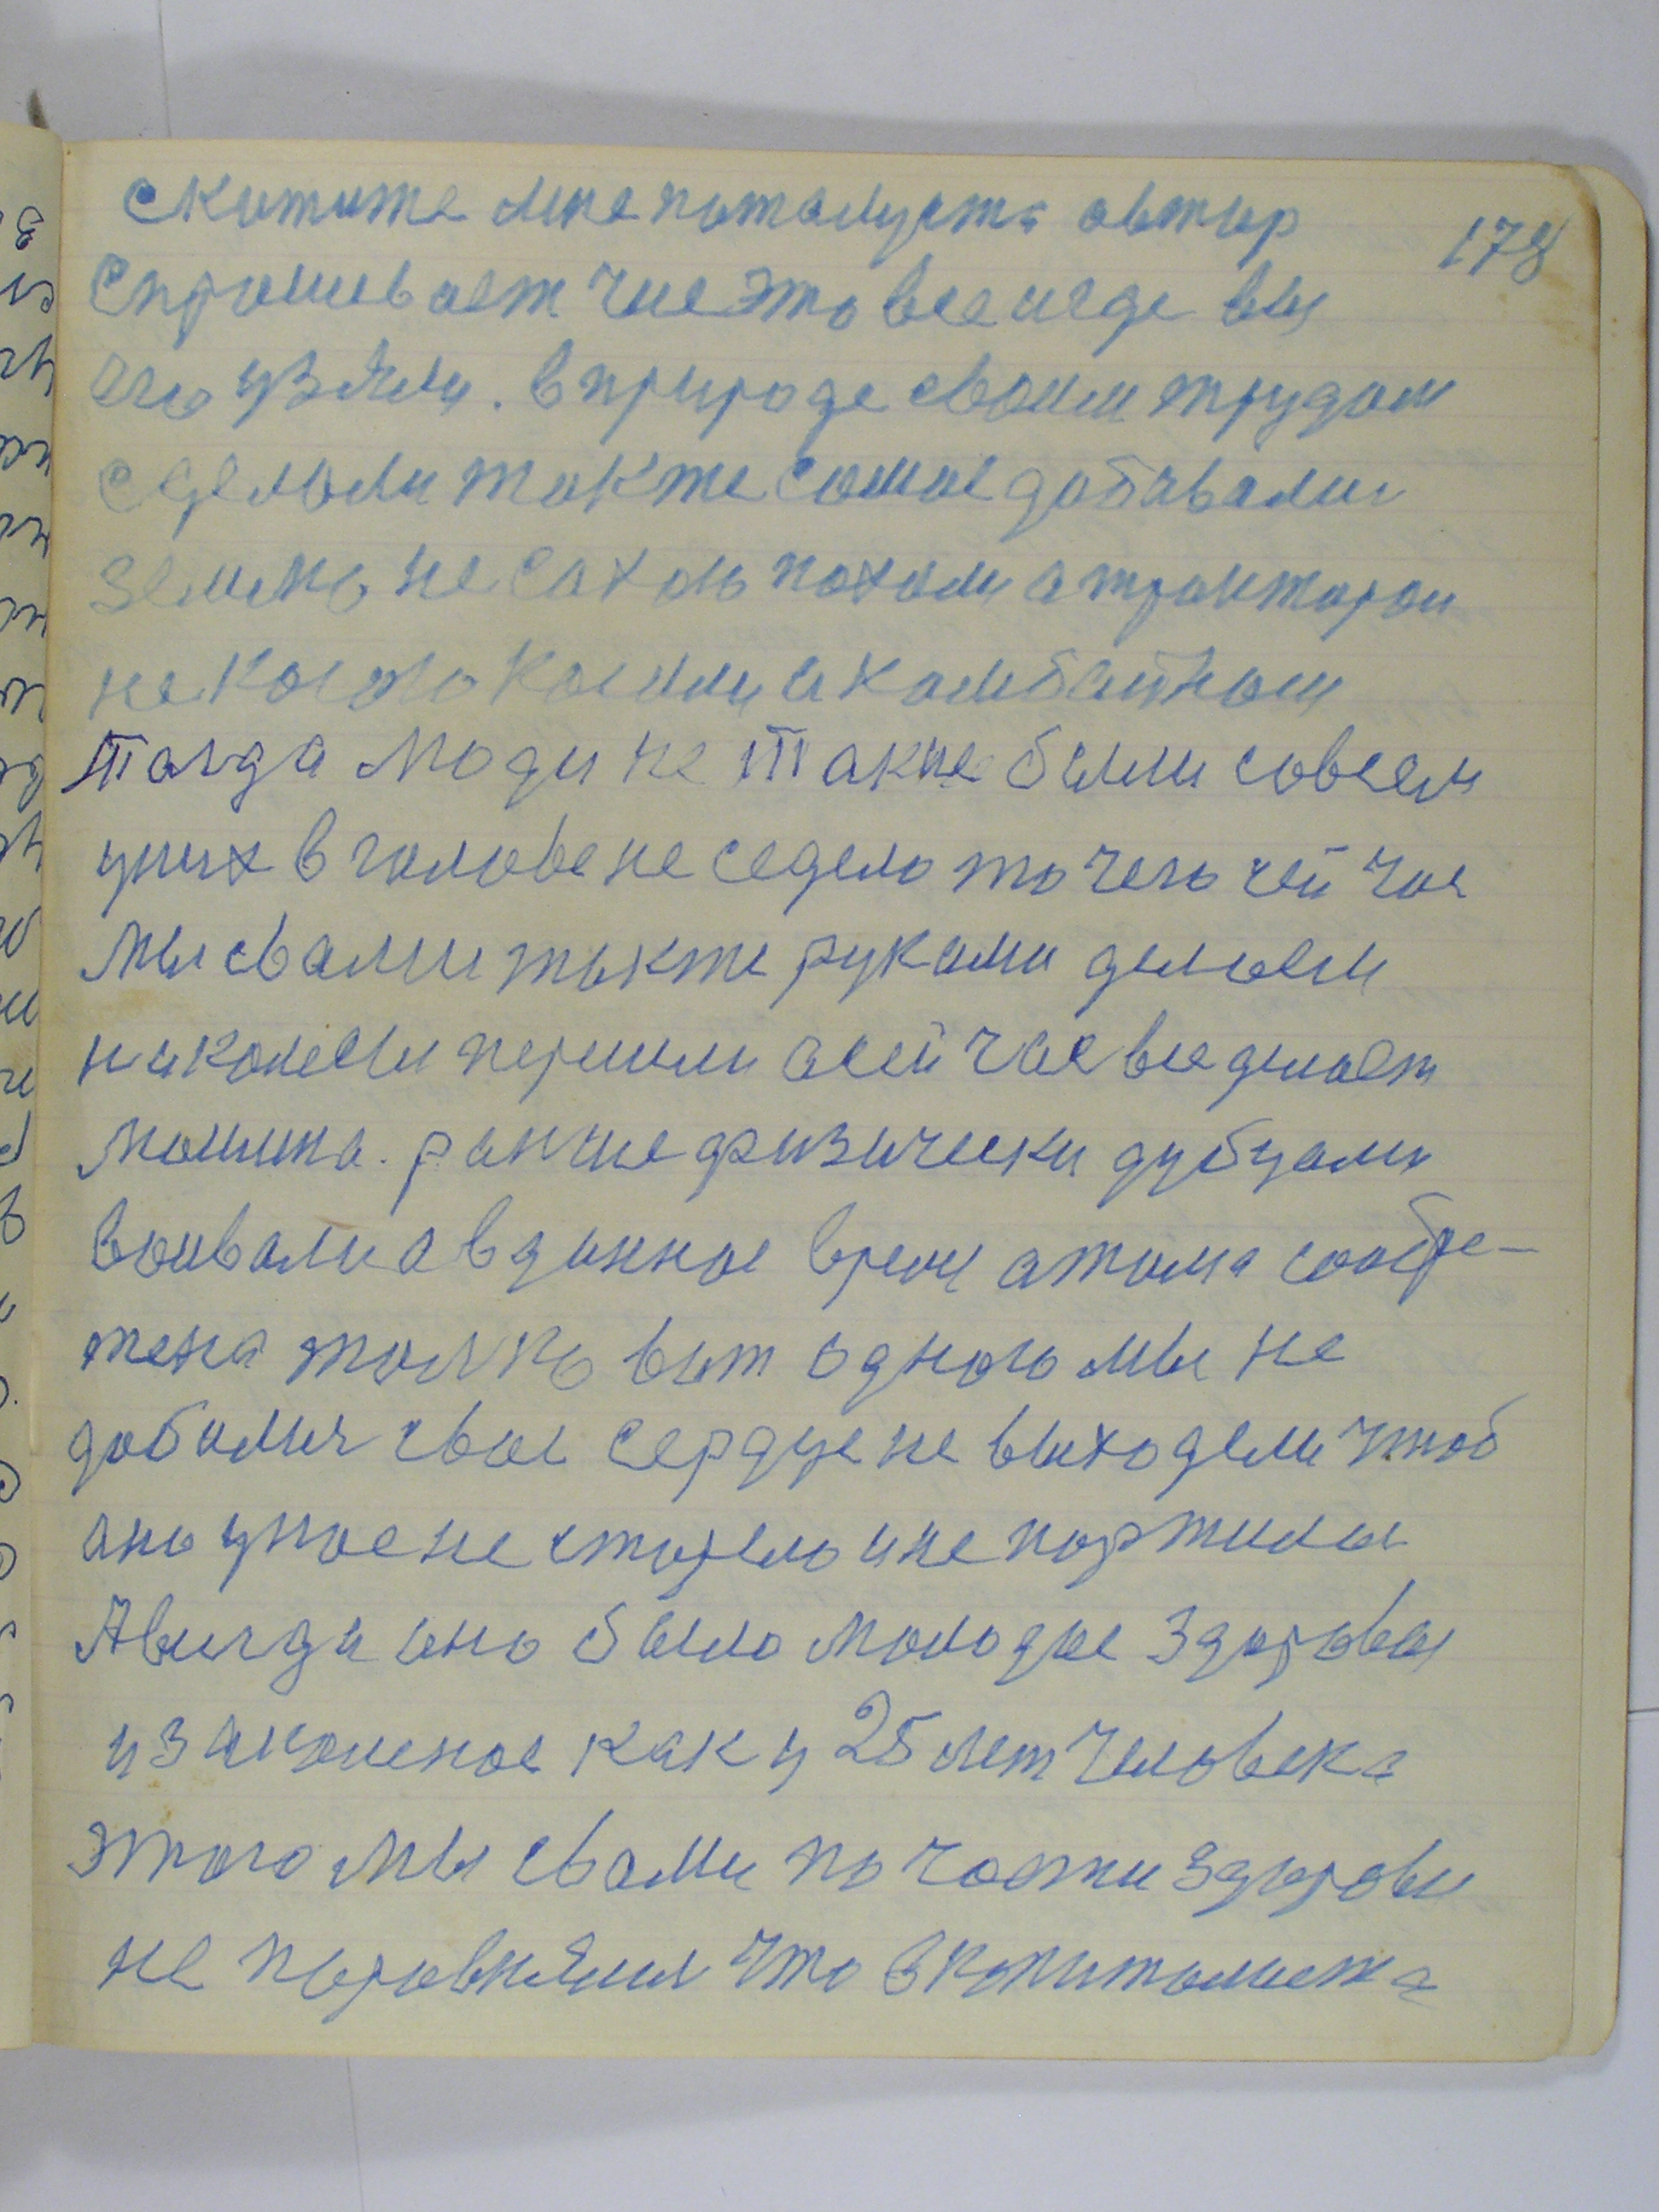 скитите мне поталуста автор 178
спрашивает чие это все иеде вы
его узяли. в природе своим трудом
сделали такте самое добывали
землю не сахою пахали а трактором
не косою косили а комбайном
тагда люди не такие были совсем
уних в голове не седело то чего сей час
мы свами такте руками делаем
на конеши перешли а сей час все делает
машина. ранше физически дубцами
воивали а в данное время атома соабре-
тена толко вит одного мы не
добилися свое сердце не выходели чтоб
оно унас не старело и не портилос
Авигда оно было молодое здоровое
изакаленое как у 25 лет человека
этого мы свами по части здоровия
не поровнялися что в капиталиста